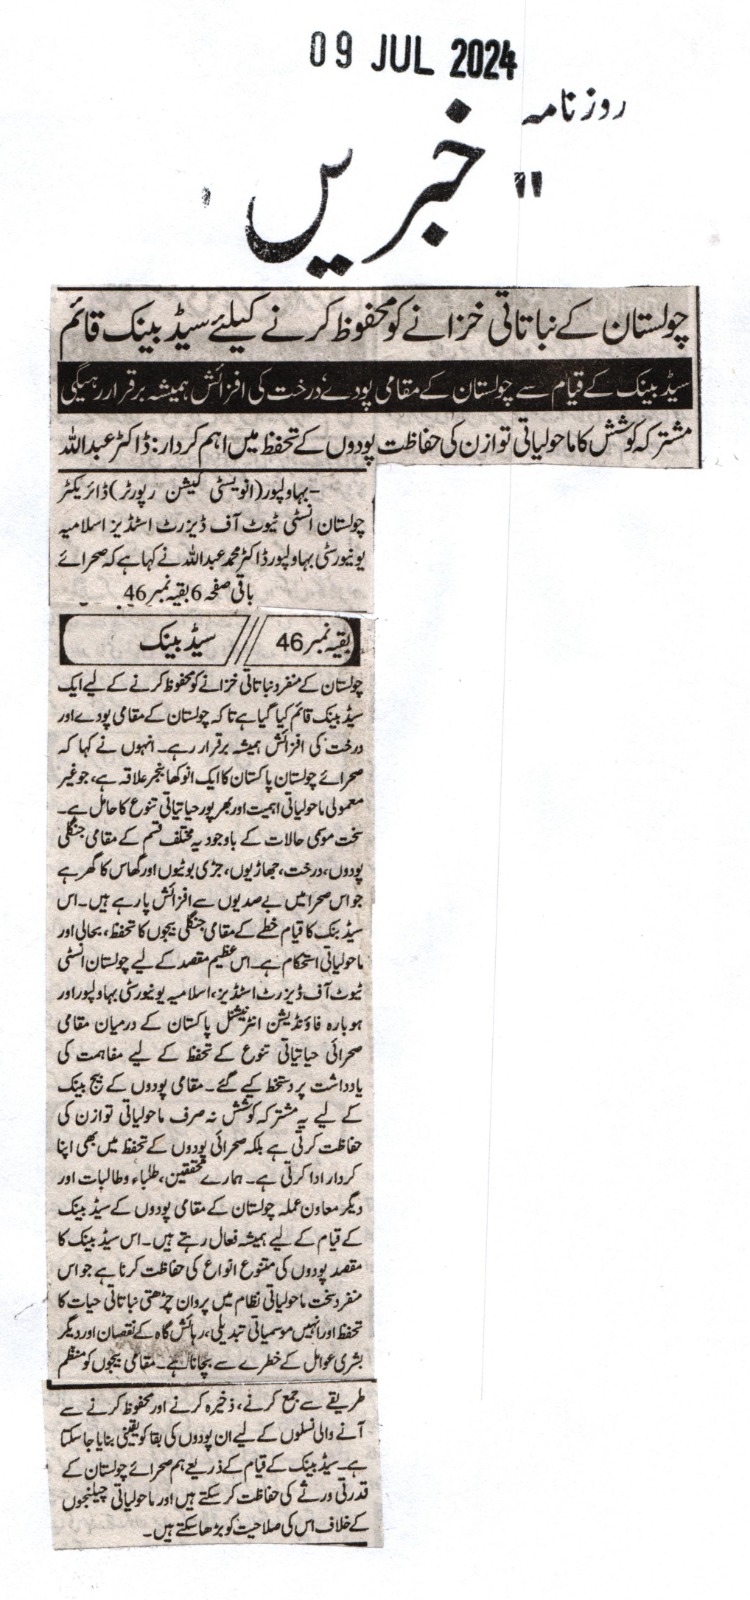 09 JUL 2024
روزنامہ
"خبریں"
چولستان کے نباتاتی خزانے کو محفوظ کرنے کیلئے سیڈ بینک قائم
سیڈ بینک کے قیام سے چولستان کے مقامی پودے، درخت کی افزائش ہمیشہ برقرار رہیگی
مشترکہ کوشش کا ماحولیاتی توازن کی حفاظت پودوں کے تحفظ میں اہم کردار: ڈاکٹر عبداللہ
بہاولپور (انویسٹی گیشن رپورٹر) ڈائریکٹر
چولستان انسٹی ٹیوٹ آف ڈیزرٹ اسٹڈیز اسلامیہ
یونیورسٹی بہاولپور ڈاکٹر محمد عبداللہ نے کہا ہے کہ صحرائے
باقی صفحہ 6 بقیہ نمبر 46
بقیہ نمبر 46 // سیڈ بینک
چولستان کے منفرد نباتاتی خزانے کو محفوظ کرنے کے لیے ایک
سیڈ بینک قائم کیا گیا ہے تاکہ چولستان کے مقامی پودے اور
درخت کی افزائش ہمیشہ برقرار رہے۔ انہوں نے کہا کہ
صحرائے چولستان پاکستان کا ایک انوکھا بنجر علاقہ ہے، جو غیر
معمولی ماحولیاتی اہمیت اور بھرپور حیاتیاتی تنوع کا حامل ہے۔
سخت موسمی حالات کے باوجود یہ مختلف قسم کے مقامی جنگلی
پودوں، درخت، جھاڑیوں، جڑی بوٹیوں اور گھاس کا گھر ہے
جو اس صحرا میں بے صدیوں سے افزائش پا رہے ہیں۔ اس
سیڈ بنک کا قیام خطے کے مقامی جنگلی بیجوں کا تحفظ، بحالی اور
ماحولیاتی استحکام ہے۔ اس عظیم مقصد کے لیے چولستان انسٹی
ٹیوٹ آف ڈیزرٹ اسٹڈیز، اسلامیہ یونیورسٹی بہاولپور اور
ہوبارہ فاؤنڈیشن انٹرنیشنل پاکستان کے درمیان مقامی
صحرائی حیاتیاتی تنوع کے تحفظ کے لیے مفاہمت کی
یادداشت پر دستخط کیے گئے۔ مقامی پودوں کے بیج بینک
کے لیے یہ مشترکہ کوشش نہ صرف ماحولیاتی توازن کی
حفاظت کرتی ہے بلکہ صحرائی پودوں کے تحفظ میں بھی اپنا
کردار ادا کرتی ہے۔ ہمارے محققین، طلباء و طالبات اور
دیگر معاون عملہ چولستان کے مقامی پودوں کے سیڈ بینک
کے قیام کے لیے ہمیشہ فعال رہتے ہیں۔ اس سیڈ بینک کا
مقصد پودوں کی متنوع انواع کی حفاظت کرنا ہے جو اس
منفرد سخت ماحولیاتی نظام میں پروان چڑھتی نباتاتی حیات کا
تحفظ اور انہیں موسمیاتی تبدیلی، رہائش گاہ کے نقصان اور دیگر
بشری عوامل کے خطرے سے بچانا ہے۔ مقامی بیجوں کو منظم
طریقے سے جمع کرنے، ذخیرہ کرنے اور محفوظ کرنے سے
آنے والی نسلوں کے لیے ان پودوں کی بقا کو یقینی بنایا جا سکتا
ہے۔ سیڈ بینک کے قیام کے ذریعے ہم صحرائے چولستان کے
قدرتی ورثے کی حفاظت کر سکتے ہیں اور ماحولیاتی چیلنجوں
کے خلاف اس کی صلاحیت کو بڑھا سکتے ہیں۔